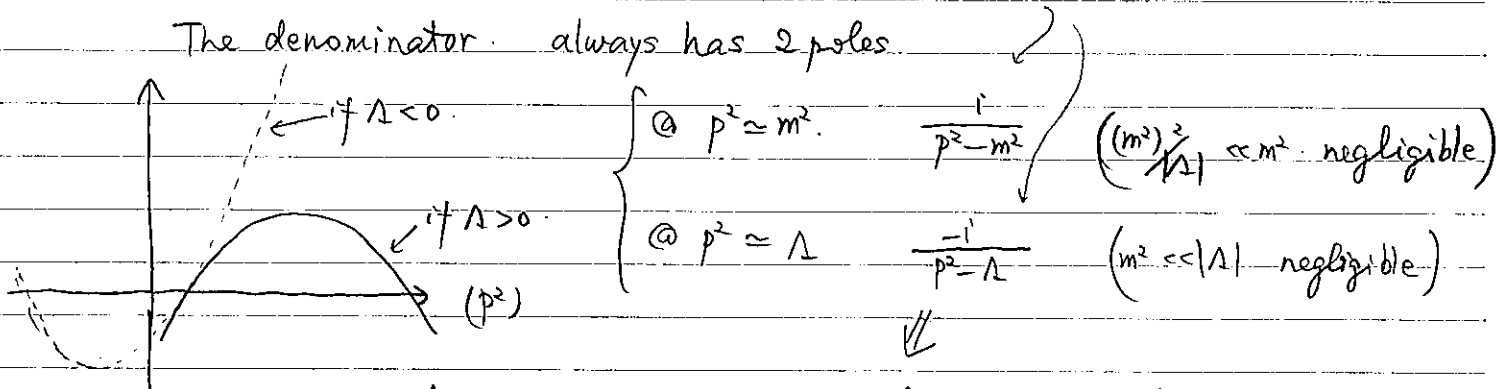 The denominator. always has 2 poles.
if Λ<0.
@ p²≃m². i/(p²−m²) ((m²)²/|Λ| ≪m². negligible)
if Λ>0.
@ p²≃Λ −i/(p²−Λ) (m²≪|Λ| negligible)
(p²)